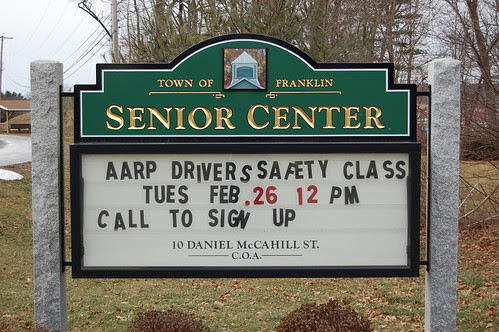 TOWN OF FRANKLIN
SENIOR CENTER
AARP DRIVERS SAFETY CLASS
TUES FEB.26 12 PM
CALL TO SIGN UP
10 DANIEL McCAHILL ST.
C.O.A.